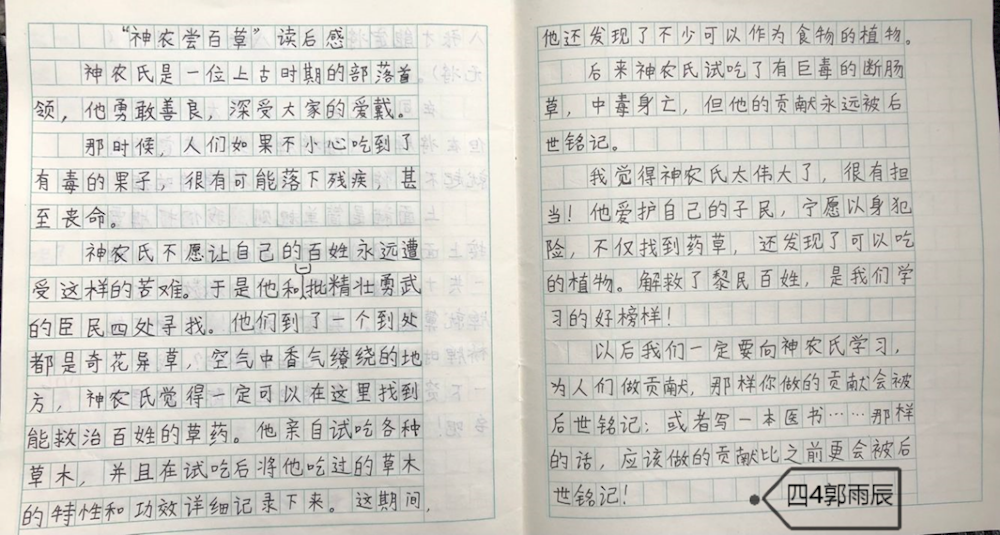 “神农尝百草”读后感
神农氏是一位上古时期的部落首
领，他勇敢善良，深受大家的爱戴。
那时候，人们如果不小心吃到了
有毒的果子，很有可能落下残疾，甚
至丧命。
神农氏不愿让自己的百姓永远遭
受这样的苦难。于是他和一批精壮勇武
的臣民四处寻找。他们到了一个到处
都是奇花异草，空气中香气缭绕的地
方，神农氏觉得一定可以在这里找到
能救治百姓的草药。他亲自试吃各种
草木，并且在试吃后将他吃过的草木
的特性和功效详细记录下来。这期间，
他还发现了不少可以作为食物的植物。
后来神农氏试吃了有巨毒的断肠
草，中毒身亡，但他的贡献永远被后
世铭记。
我觉得神农氏太伟大了，很有担
当！他爱护自己的子民，宁愿以身犯
险，不仅找到药草，还发现了可以吃
的植物。解救了黎民百姓，是我们学
习的好榜样！
以后我们一定要向神农氏学习，
为人们做贡献，那样你做的贡献会被
后世铭记；或者写一本医书……那样
的话，应该做的贡献比之前更会被后
世铭记！
四4郭雨辰